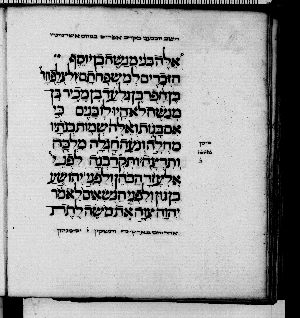 אלה בני מנשה בן יוסף
הזכרים למשפחתם ולצלפחד
בן חפר בן גלעד בן מכיר בן
מנשה לא היו לו בנים כי
אם בנות ואלה שמות בנתיו
מחלה ונעה חגלה מלכה
ותרצה ותקרבנה לפני
אלעזר הכהן ולפני יהושע
בן נון ולפני הנשיאים לאמר
יהוה צוה את משה לתת